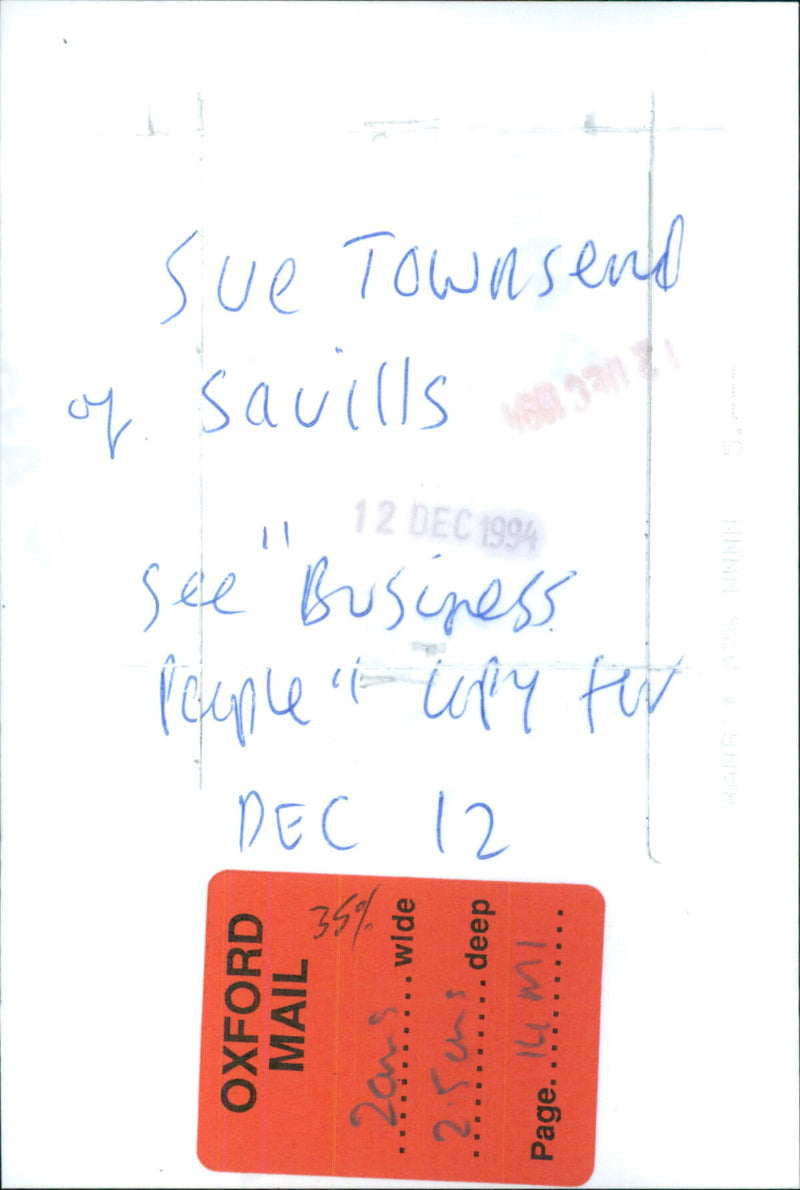 Sue Townsend
of Savills
12 DEC 1994
see "Business
People" copy for
DEC 12
OXFORD
MAIL
35%
2cms wide
2.5cms deep
Page. 14 M1